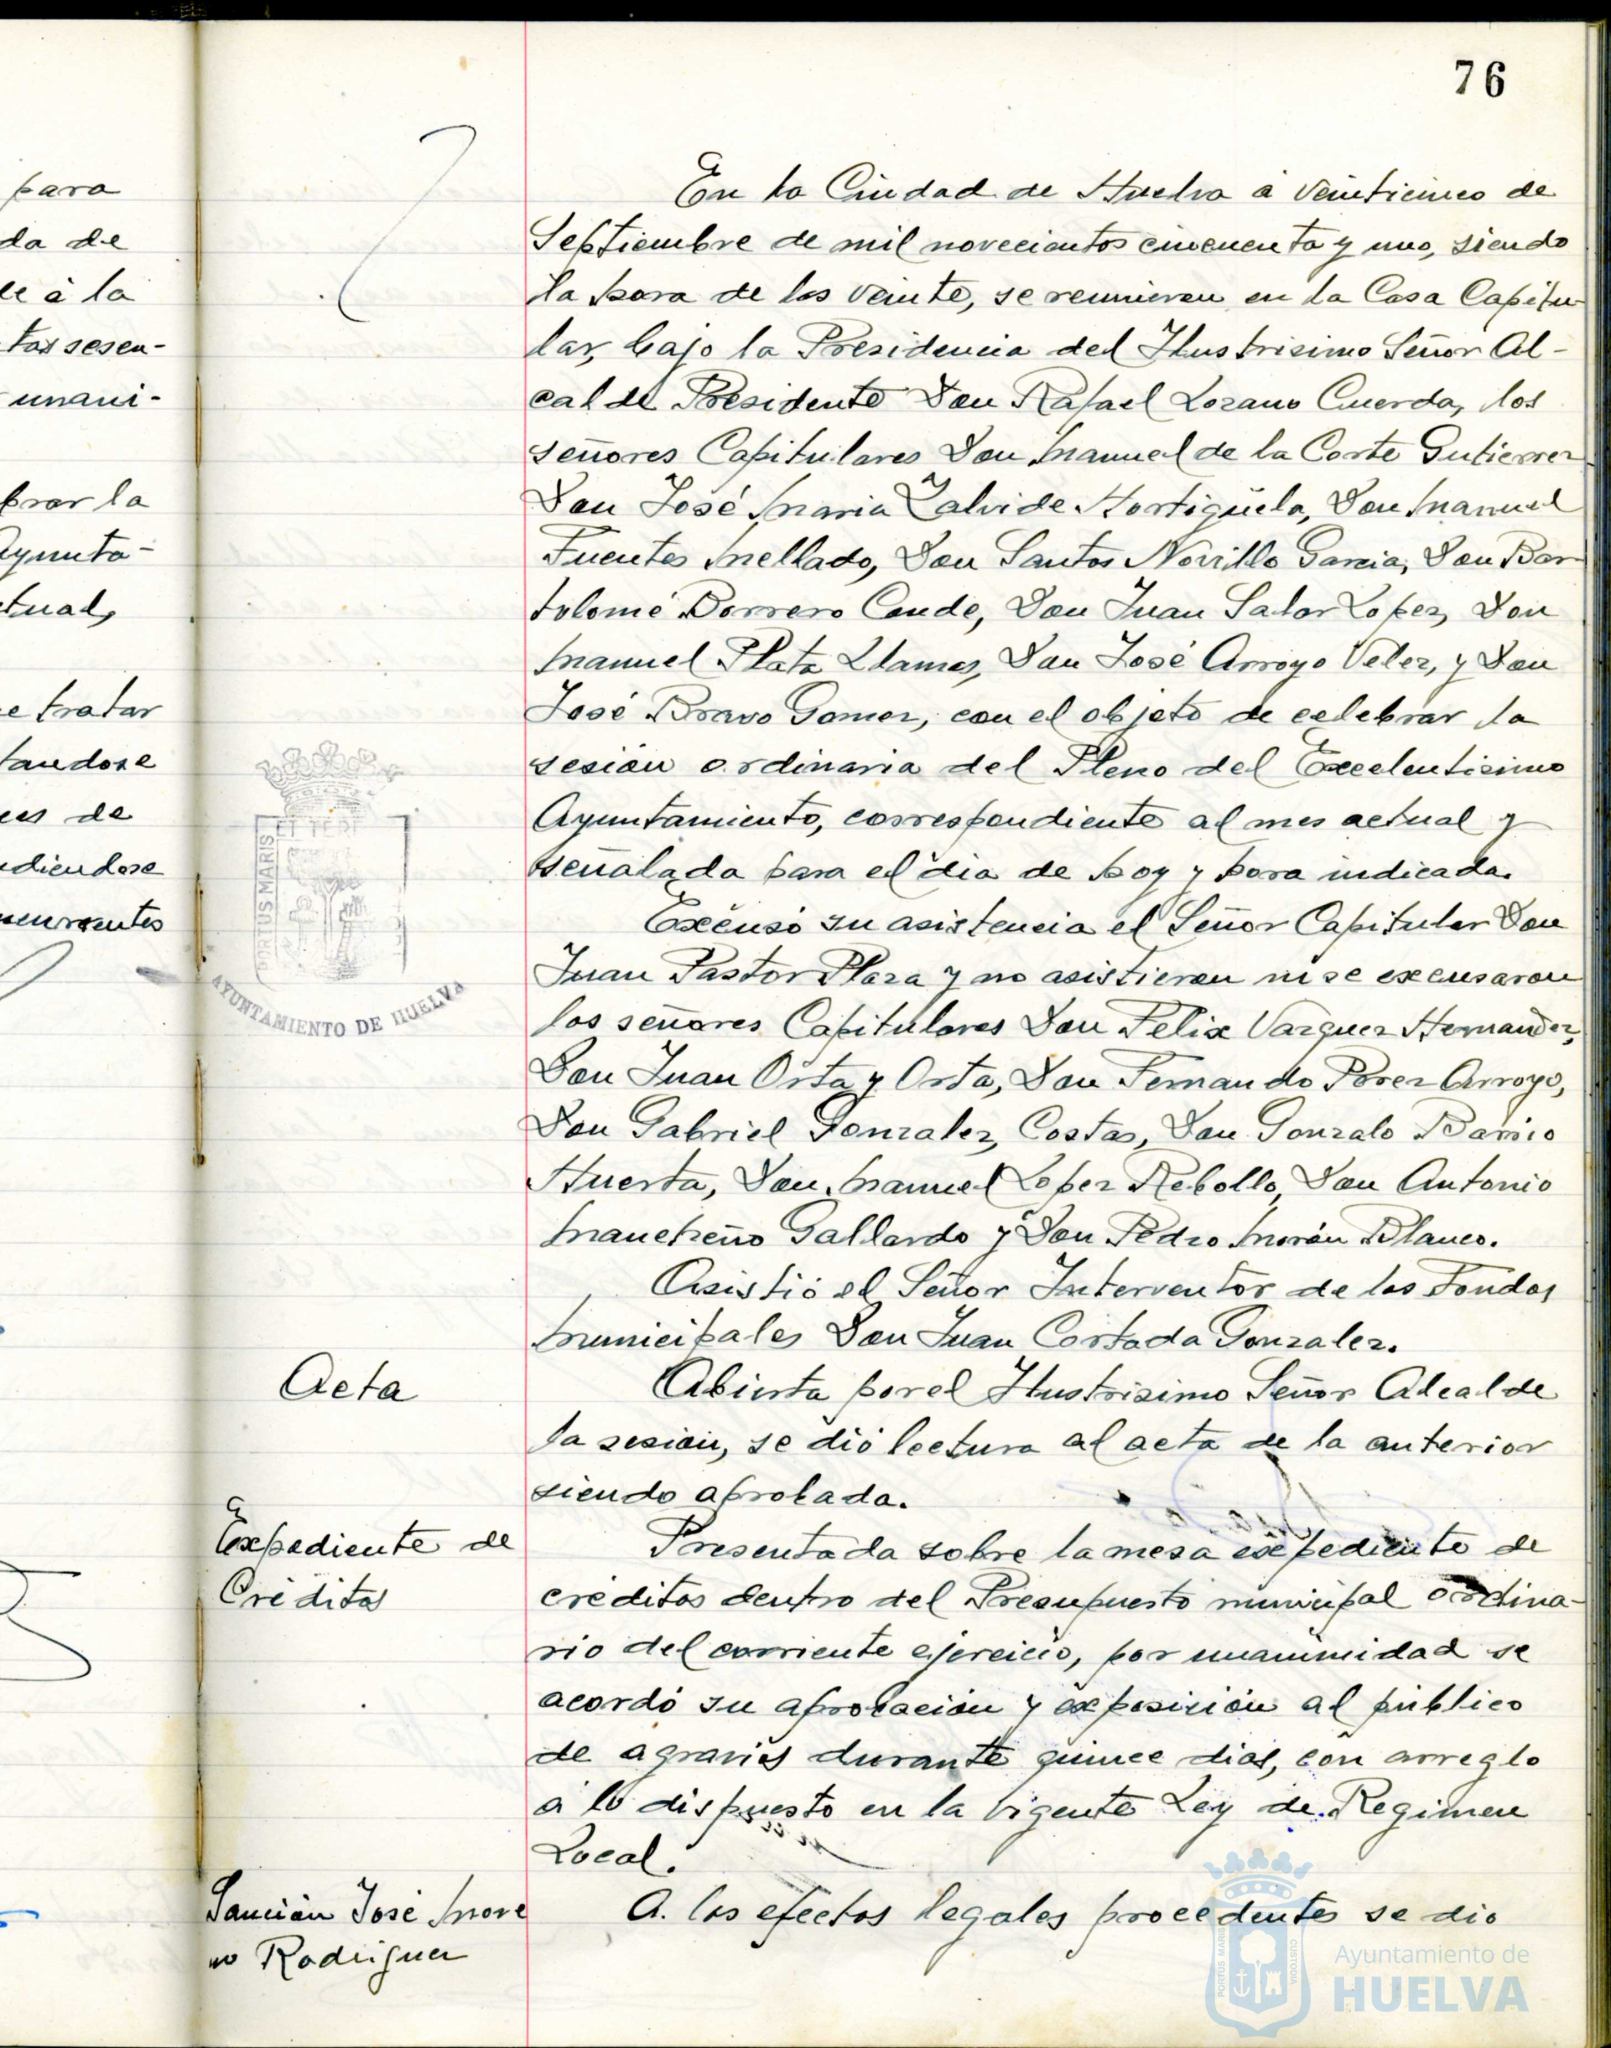 76
para
da de
le á la
tas sesen-
unani-
brar la
Ayunta-
ctual,
e tratar
tandose
es de
ndiendose
ncurrentes
En la Ciudad de Huelva á veinticinco de
Septiembre de mil novecientos cincuenta y uno, siendo
la hora de las veinte, se reunieron en la Casa Capitu-
lar, bajo la Presidencia del Ilustrisimo Señor Al-
calde Presidente Don Rafael Lozano Cuerda, los
señores Capitulares Don Manuel de la Corte Gutierrez
Don José Maria Zalvide Hortigüela, Don Manuel
Fuentes Mellado, Don Santos Novillo Garcia, Don Bar-
tolomé Borrero Conde, Don Juan Salor Lopez, Don
Manuel Plata Llamas, Don José Arroyo Velez, y Don
José Bravo Gomez, con el objeto de celebrar la
sesión ordinaria del Pleno del Excelentisimo
Ayuntamiento, correspondiente al mes actual y
señalada para el dia de hoy y hora indicada.
Excusó su asistencia el Señor Capitular Don
Juan Pastor Plaza y no asistieron ni se excusaron
los señores Capitulares Don Felix Vazquez Hernandez,
Don Juan Orta y Orta, Don Fernando Perez Arroyo,
Don Gabriel Gonzalez Costas, Don Gonzalo Barrio
Huerta, Don Manuel Lopez Rebollo, Don Antonio
Mancheño Gallardo y Don Pedro Morón Blanco.
Asistió el Señor Interventor de los Fondos
Municipales Don Juan Cortada Gonzalez.
Acta
Abierta por el Ilustrisimo Señor Alcalde
la sesión, se dió lectura al acta de la anterior
siendo aprobada.
Expediente de
Créditos
Presentada sobre la mesa expediente de
créditos dentro del Presupuesto municipal ordina-
rio del corriente ejercicio, por unanimidad se
acordó su aprobación y exposición al público
de agravios durante quince dias, con arreglo
á lo dispuesto en la vigente Ley de Regimen
Local.
Sanción José More
no Rodriguez
A los efectos legales procedentes se dio
PORTUS MARIS
ET TERE
AYUNTAMIENTO DE HUELVA
PORTUS MARIS
CUSTODIA
Ayuntamiento de
HUELVA